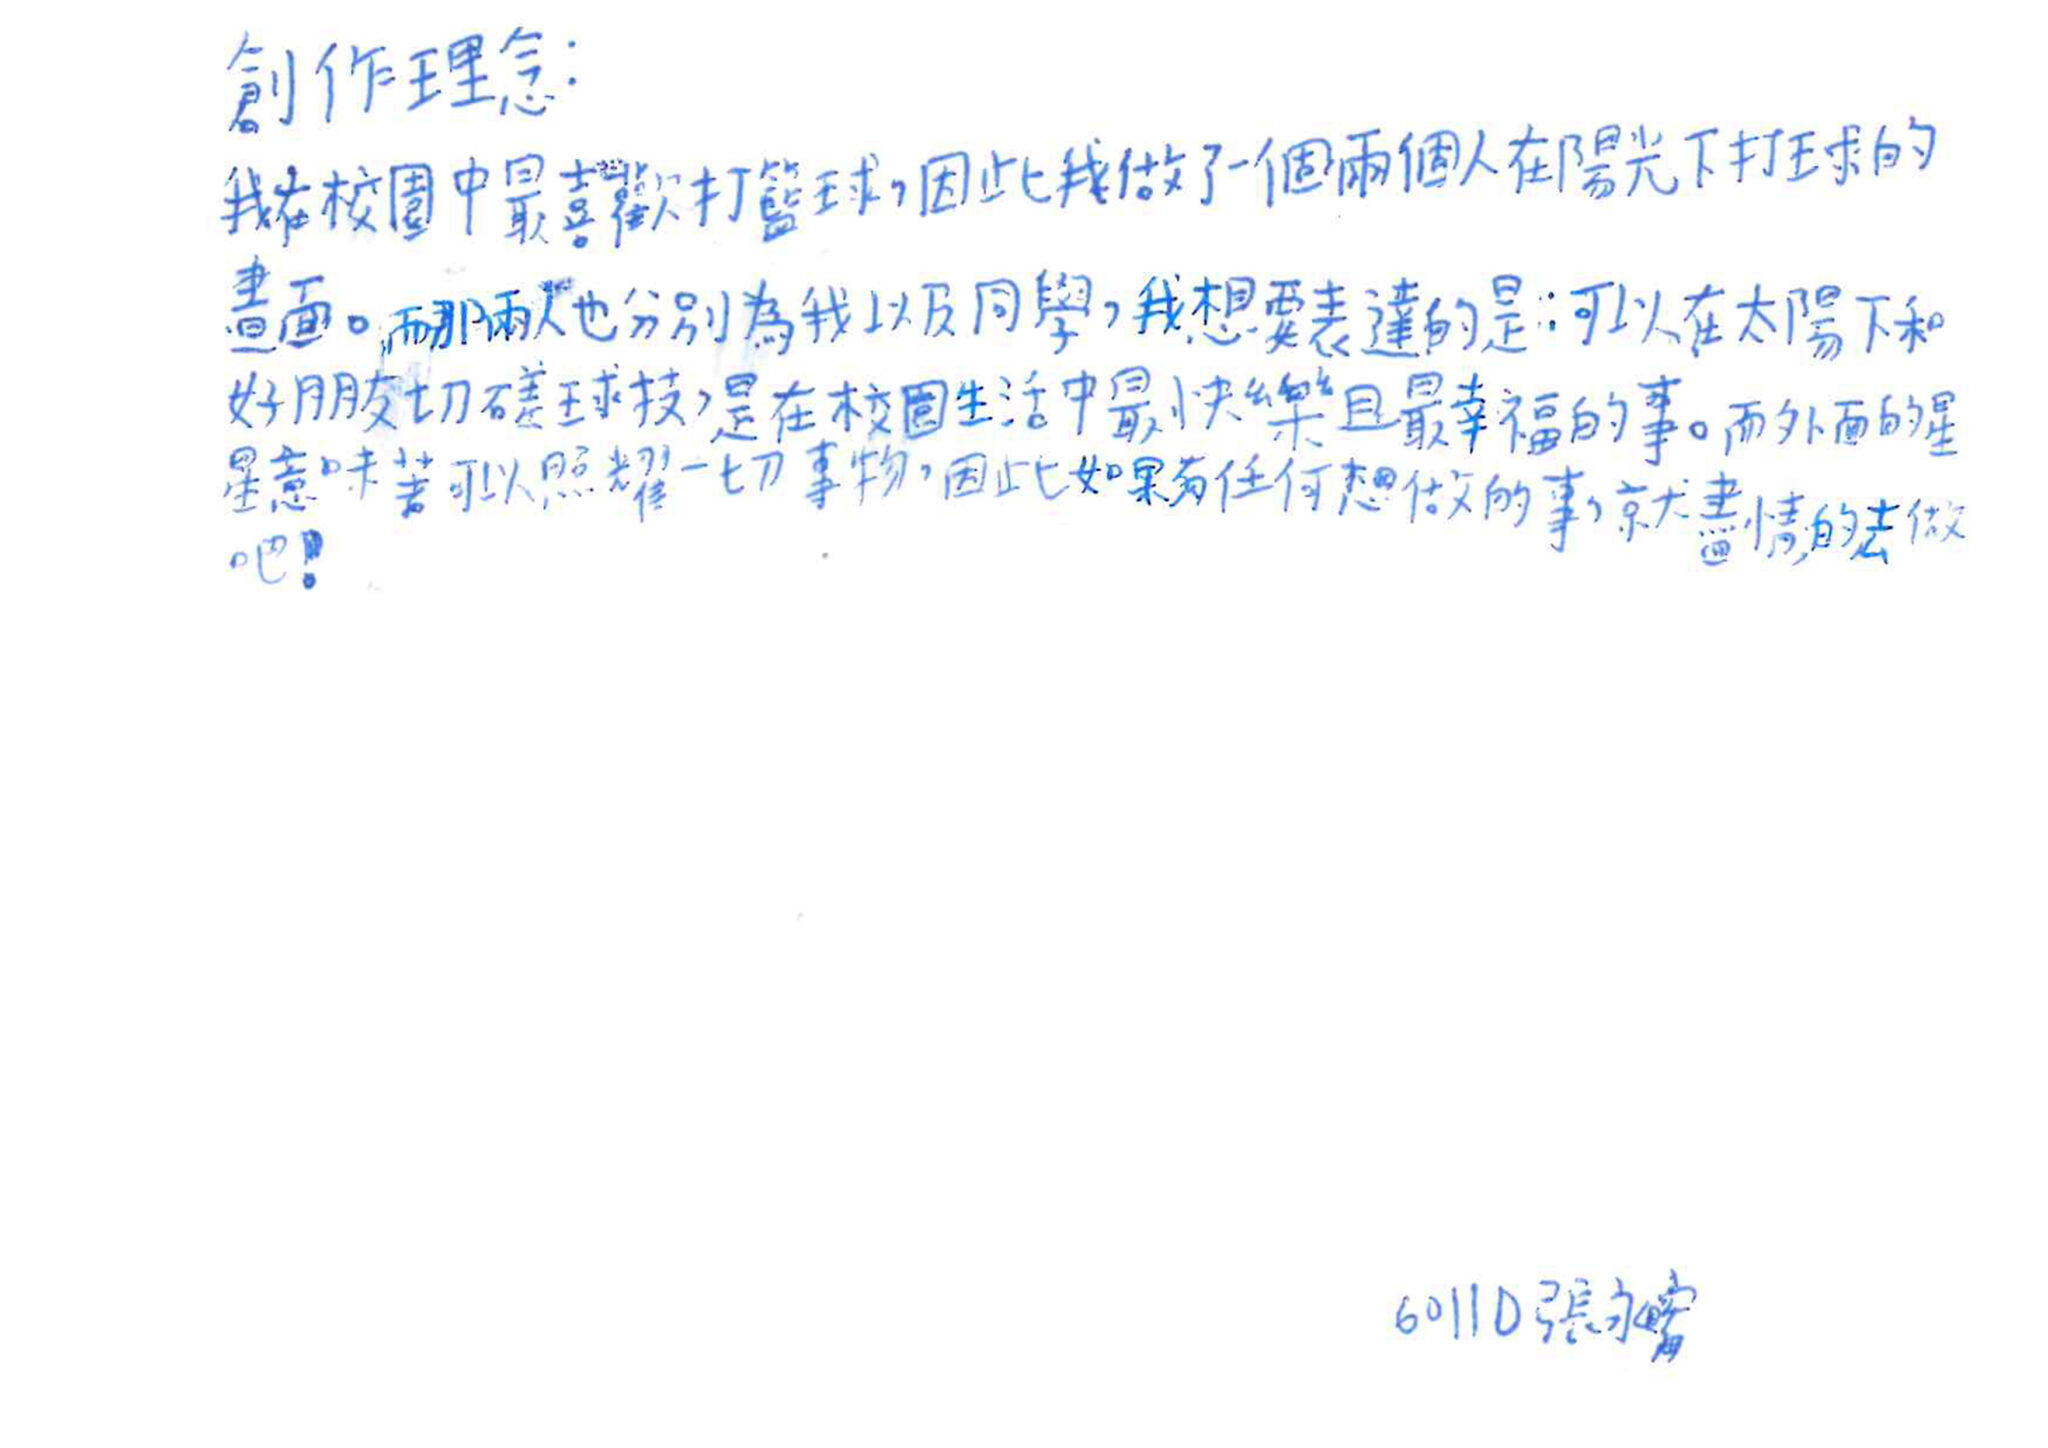 創作理念：
我在校園中最喜歡打籃球，因此我做了一個兩個人在陽光下打球的
畫面。而那兩人也分別為我以及同學，我想要表達的是：可以在太陽下和
好朋友切磋球技，是在校園生活中最快樂且最幸福的事。而外面的星
星意味著可以照耀一切事物，因此如果有任何想做的事，就盡情的去做
吧！
60110張永